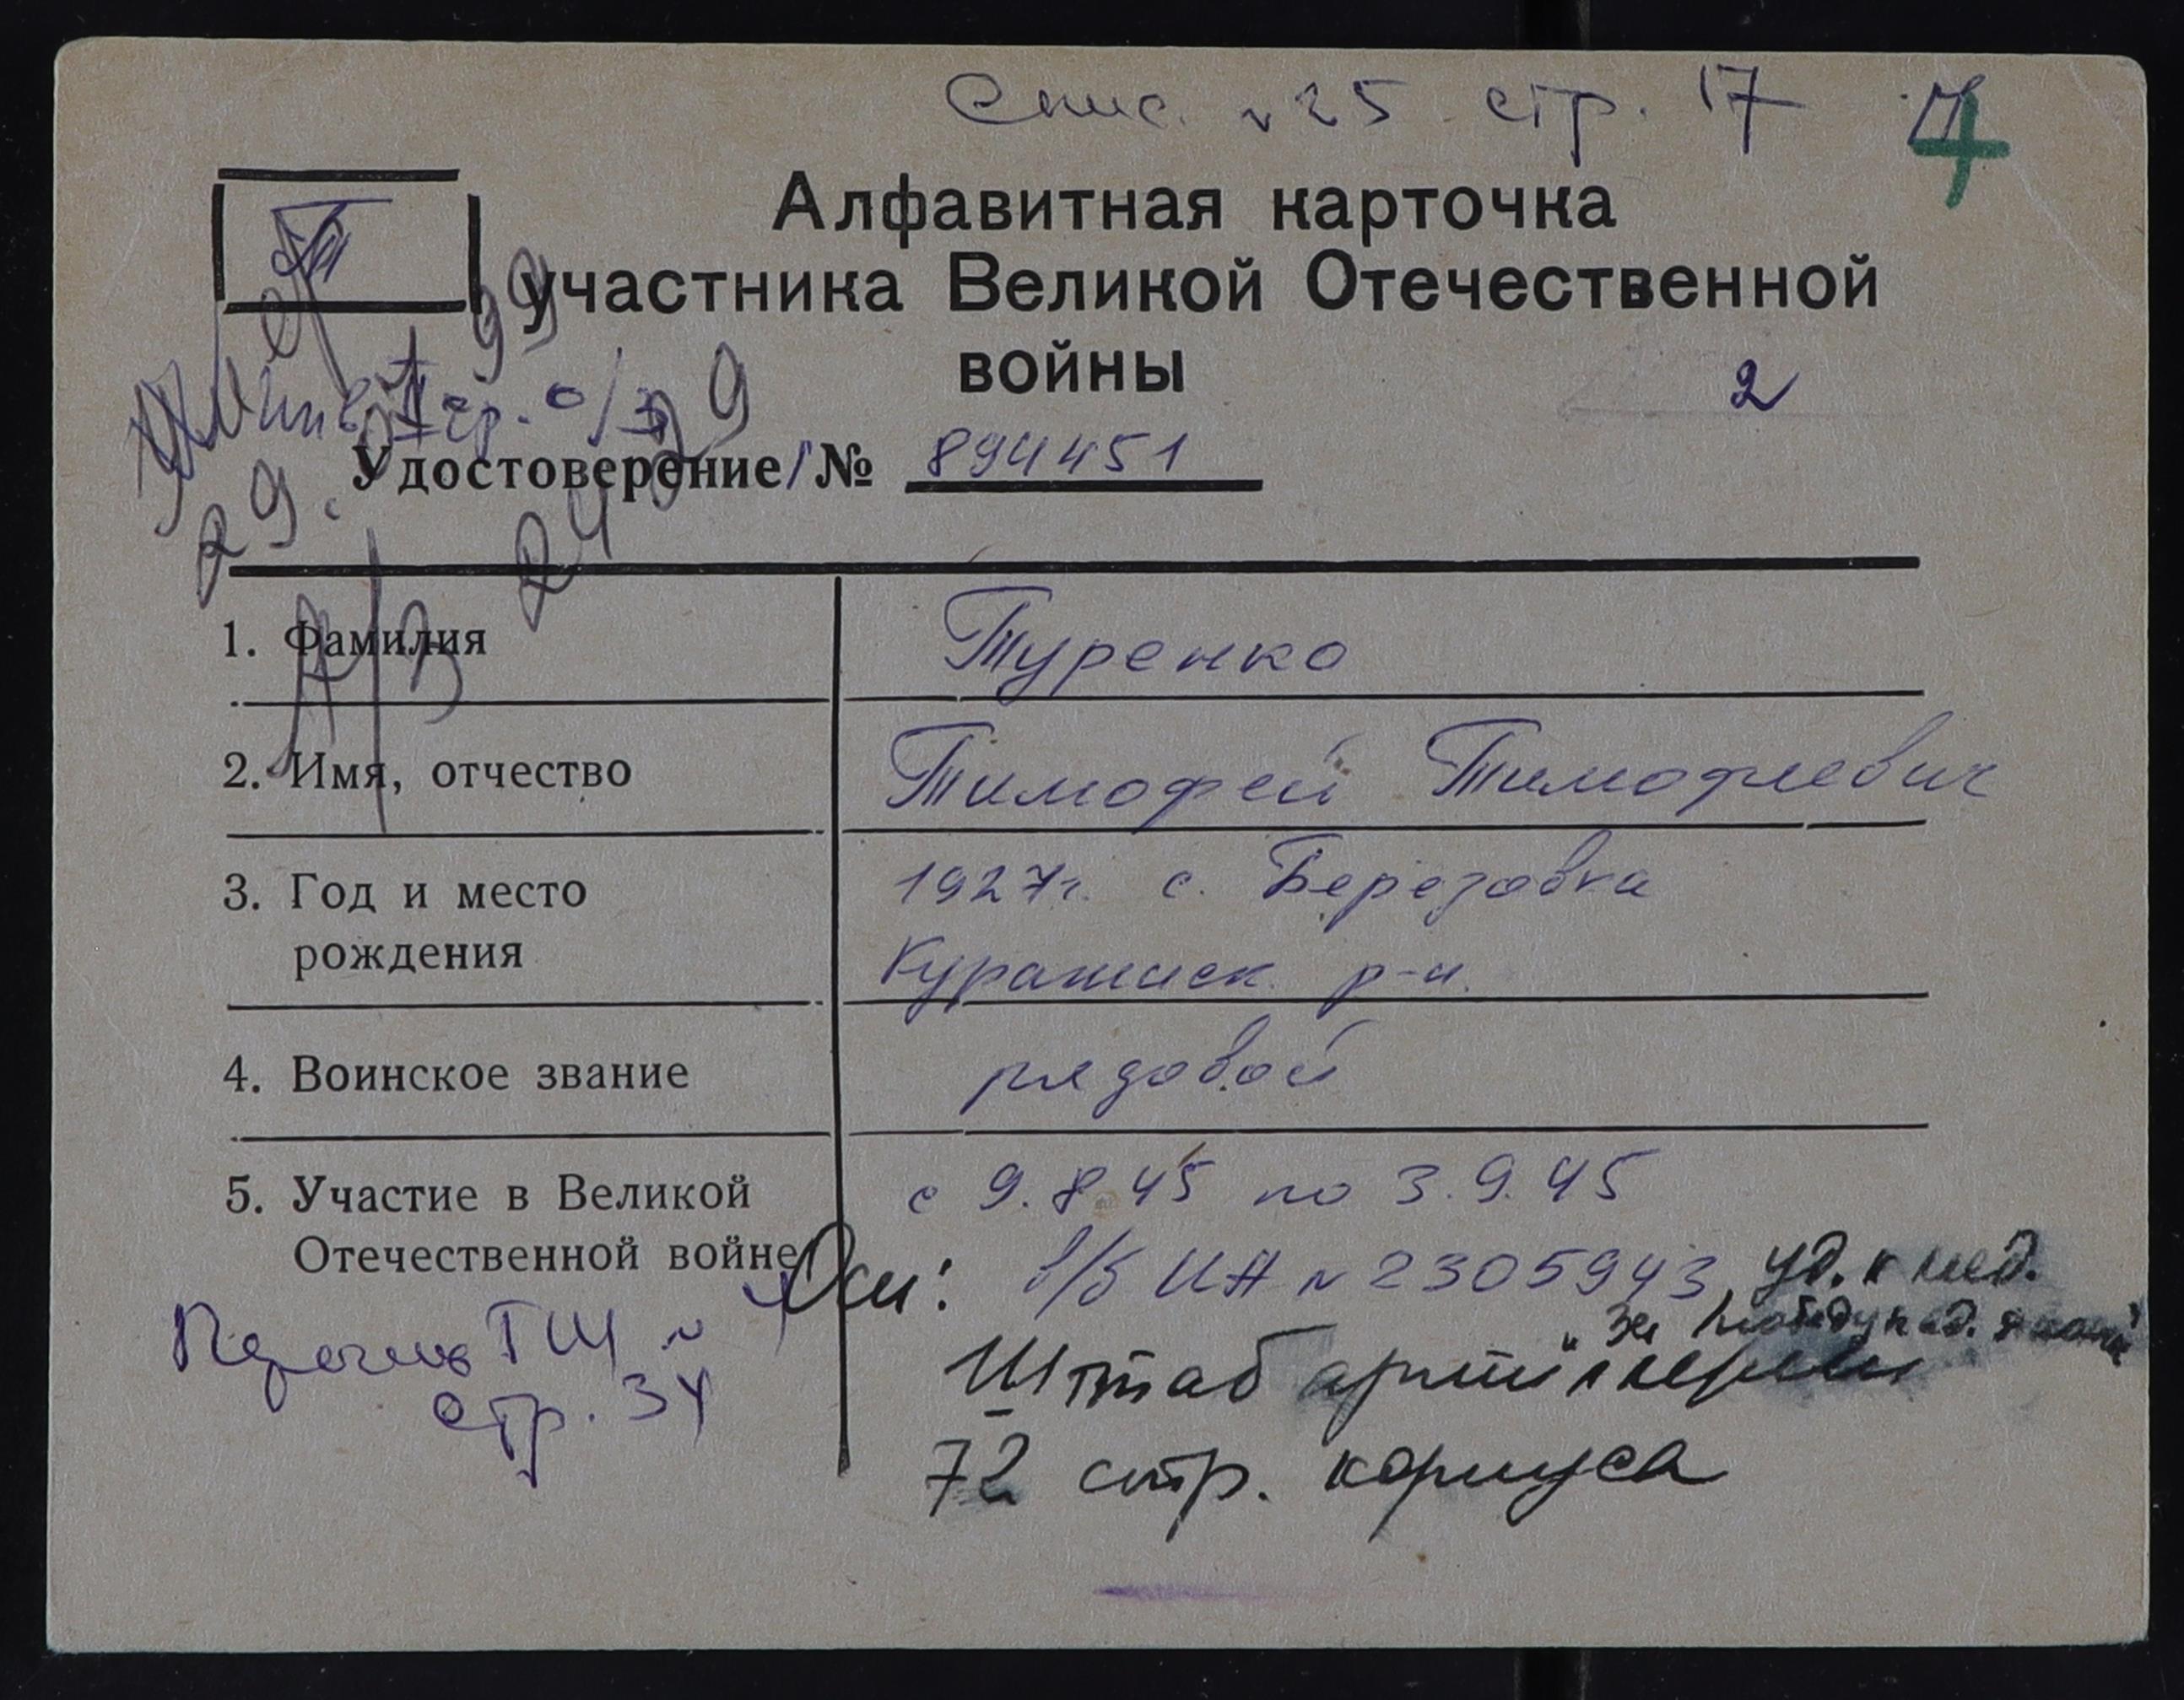 Спис. № 25 стр. 17
Алфавитная карточка
участника Великой Отечественной
войны
2
Удостоверение № 894451
29.
24
1. Фамилия Туренко
2. Имя, отчество Тимофей Тимофеевич
3. Год и место 1927 г. с. Березовка
рождения Курашиск. р-н.
4. Воинское звание рядовой
5. Участие в Великой с 9.8.45 по 3.9.45
Отечественной войне Осн: в/б ИА № 2305943, уд. к мед.
"За победу над Японией"
Перечень ГШ № 4
Штаб артиллерии
стр. 34
72 стр. корпуса